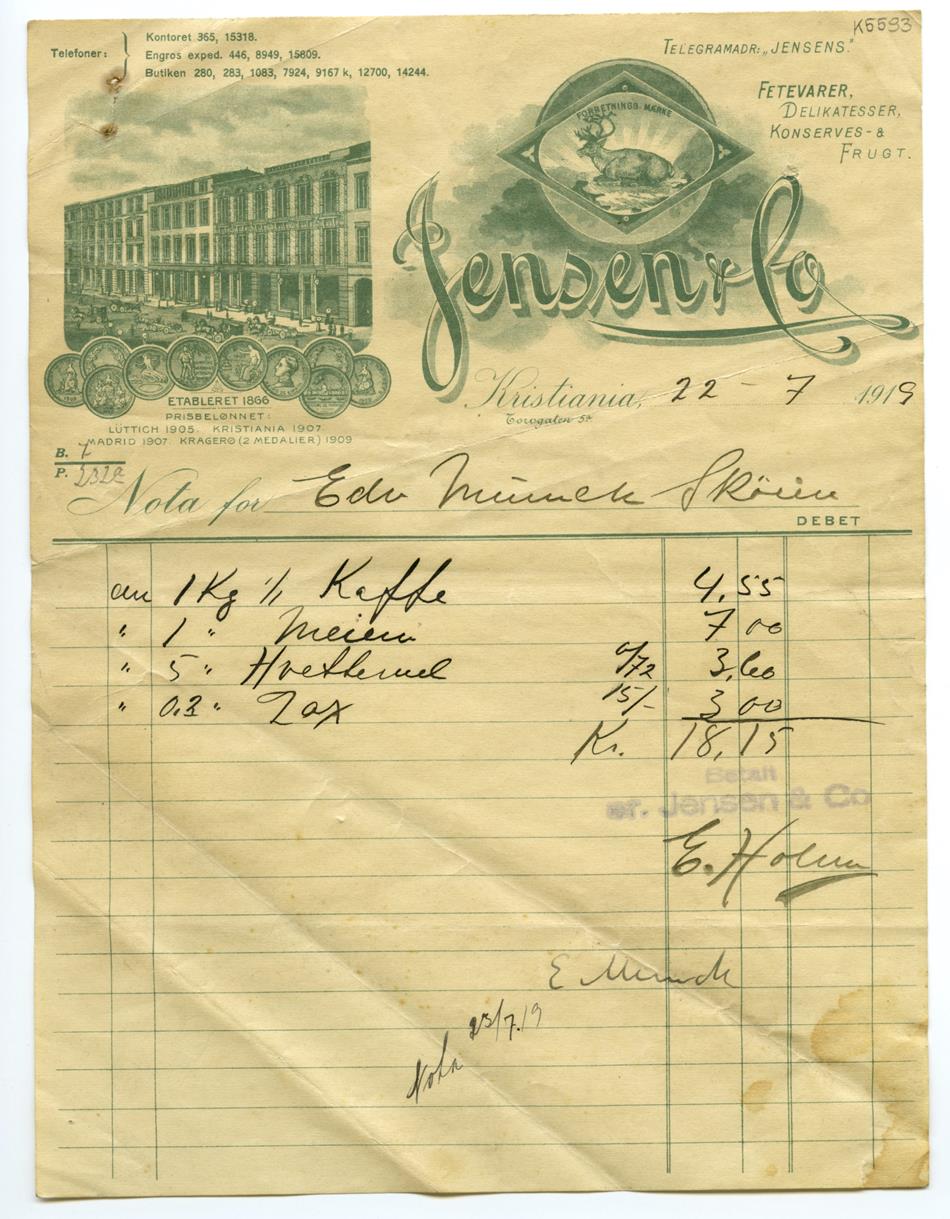 K5593
Telefoner:
Kontoret 365, 15318.
Engros exped. 446, 8949, 15809.
Butiken 280, 283, 1083, 7924, 9167 k, 12700, 14244.
TELEGRAMADR: „JENSENS."
FETEVARER,
DELIKATESSER,
KONSERVES- &
FRUGT.
FORRETNINGS-MÆRKE
Jensen & Co
ETABLERET 1866
PRISBELØNNET:
LÜTTICH 1905. KRISTIANIA 1907.
MADRID 1907. KRAGERØ (2 MEDALIER) 1909
Kristiania, 22 - 7 1919
Torvgaten 5a
B. 7
P.
Nota for Edv Munch Skøien
DEBET
an 1 Kg 1/1 Kaffe 4,55
" 1 " 7 00
" 5 " Hvetemel 0/72 3,60
" 0.2 " Lax 15/- 3 00
Kr. 18,15
Betalt
Jensen & Co
E. Holm
E Munch
23/7.19
Nota